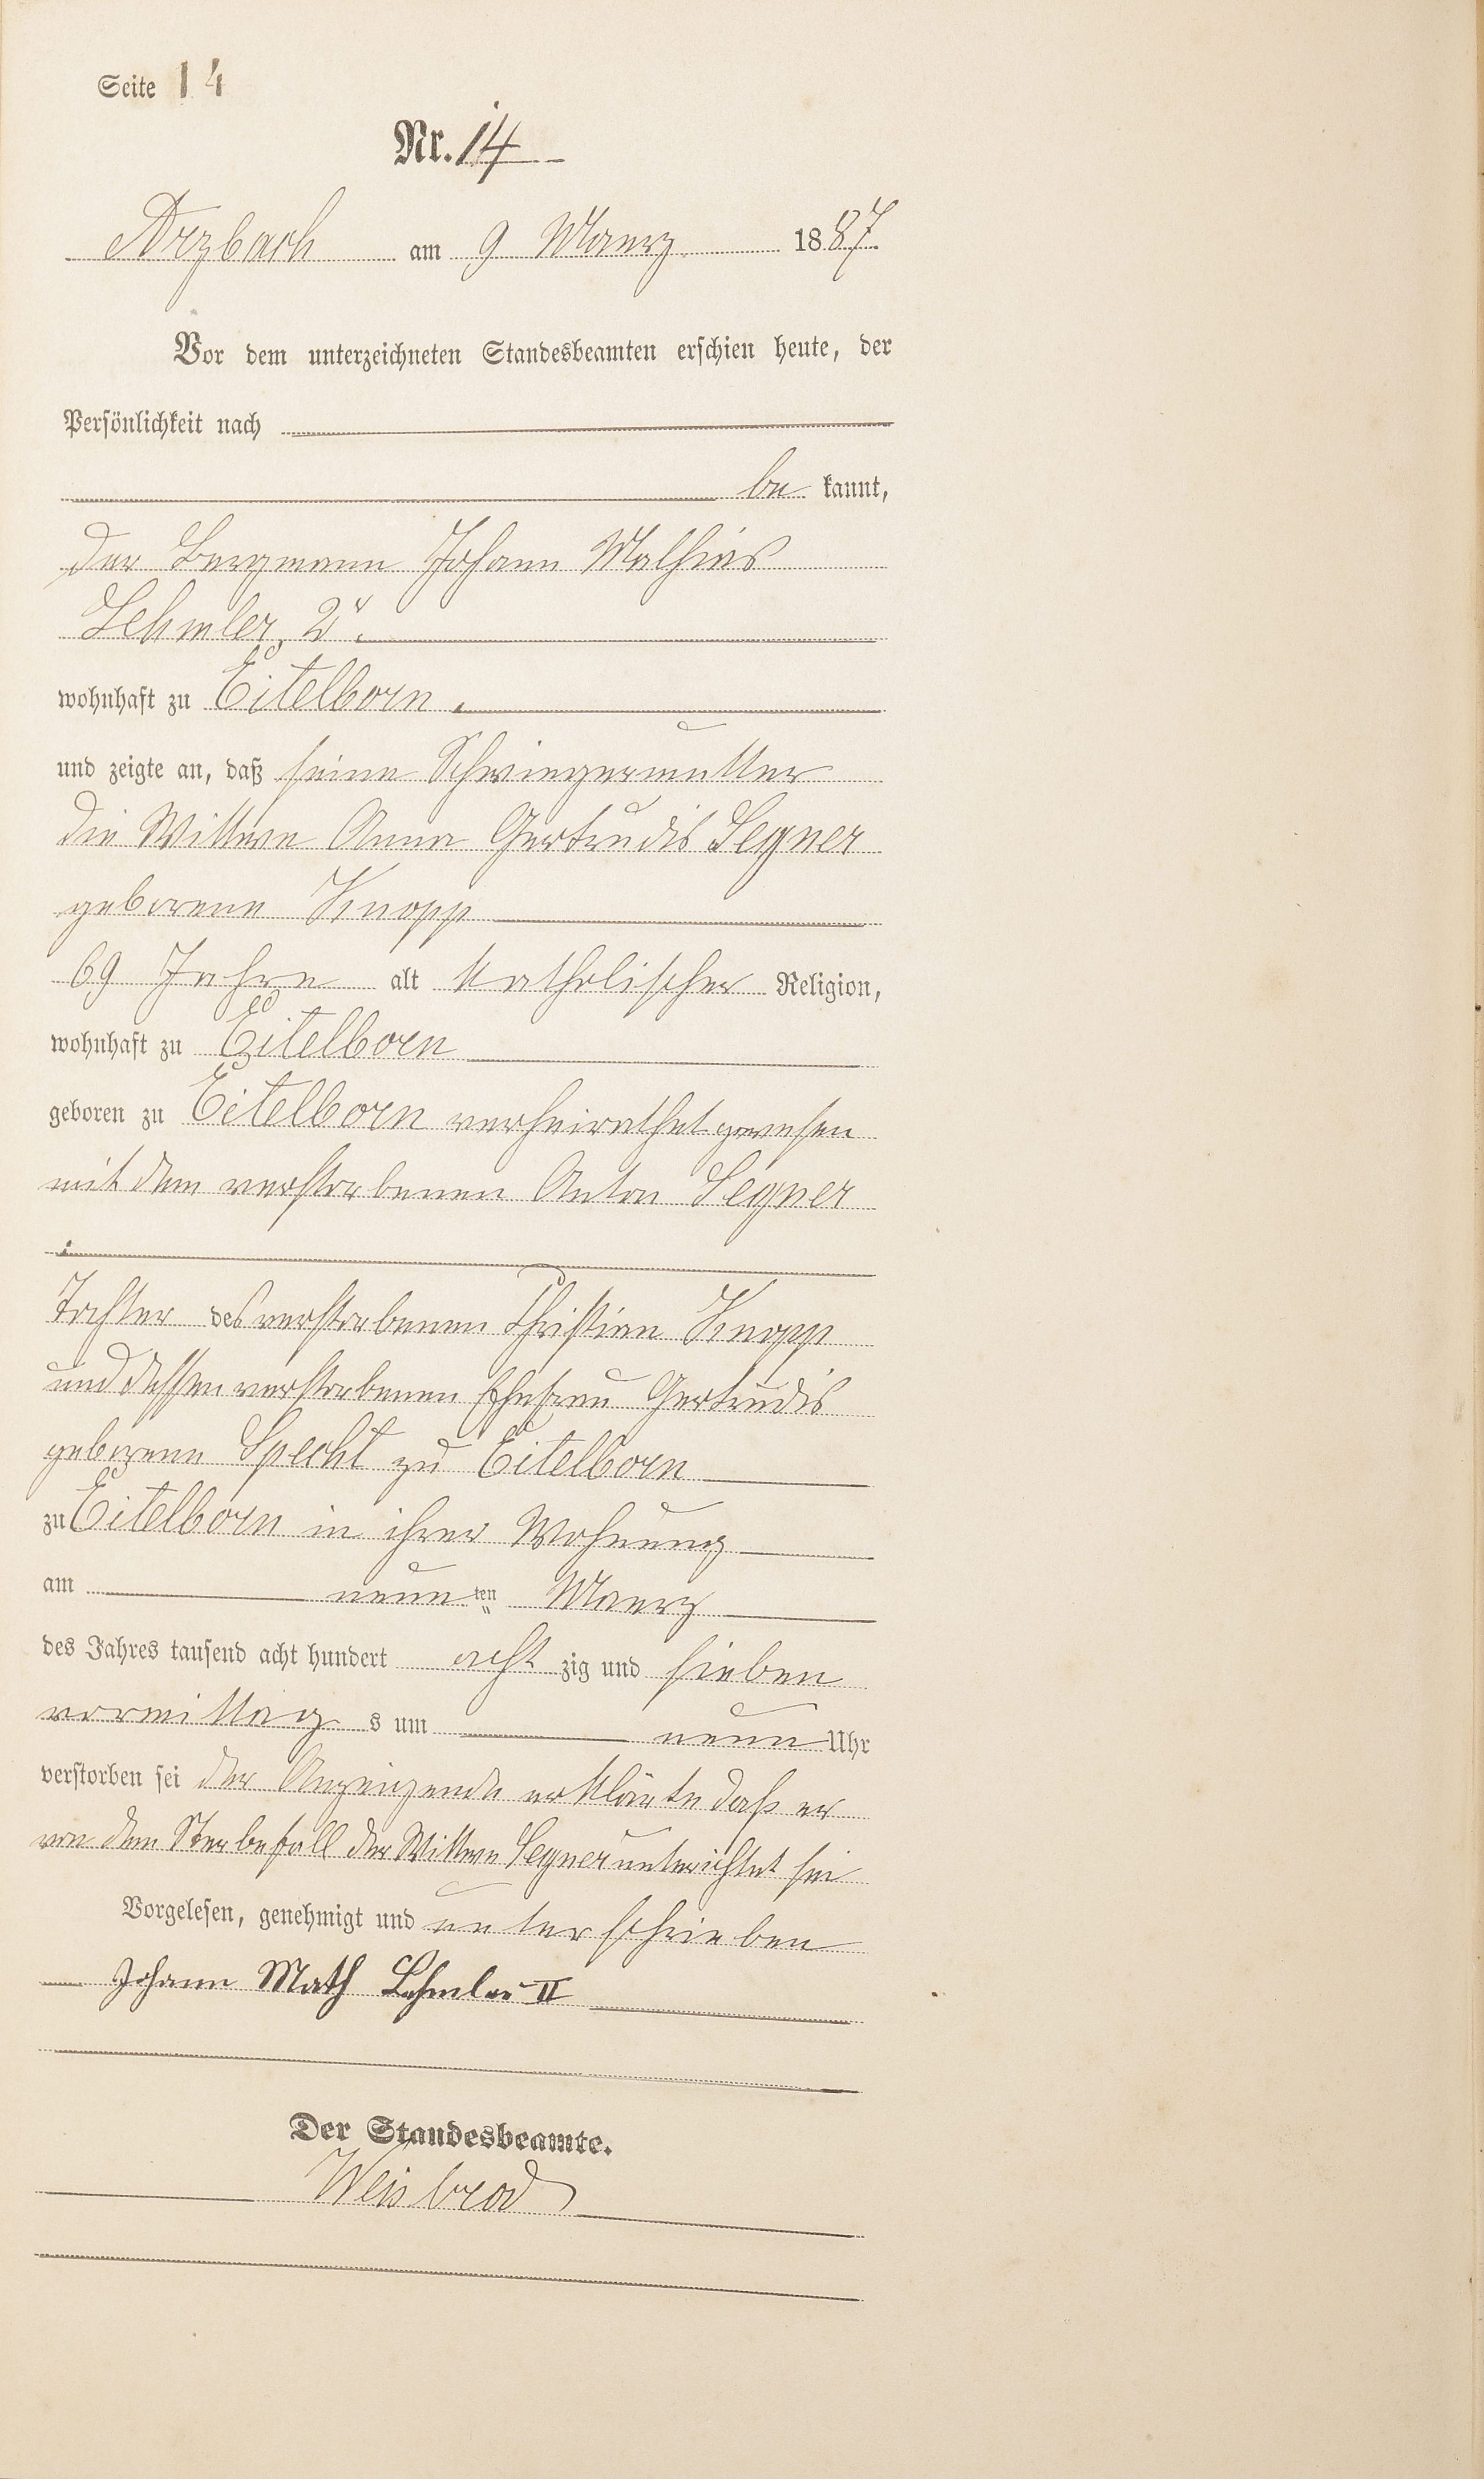 Seite 14
Nr. 14
Arzbach am 9 Maerz 1887.
Vor dem unterzeichneten Standesbeamten erschien heute, der
Persönlichkeit nach
be kannt,
der Bergmann Johann Mathias
Lehmler 2r.
wohnhaft zu Eitelborn.
und zeigte an, daß seine Schwiegermutter
die Wittwe Anna Gertrudis Legner
geborene Knopp
69 Jahre alt katholischer Religion,
wohnhaft zu Eitelborn
geboren zu Eitelborn verheirathet gewesen
mit dem verstorbenen Anton Legner
Tochter des verstorbenen Christian Knopp
und dessen verstorbenen Ehefrau Gertrudis
geborene Specht zu Eitelborn
zu Eitelborn in ihrer Wohnung
am neun ten Maerz
des Jahres tausend acht hundert acht zig und sieben
vormittag s um neun Uhr
verstorben sei der Anzeigende erklärte daß er
von dem Sterbefall der Wittwe Legner unterrichtet sei
Vorgelesen, genehmigt und unterschrieben
Johann Math Lehmler II
Der Standesbeamte.
Weisbrod